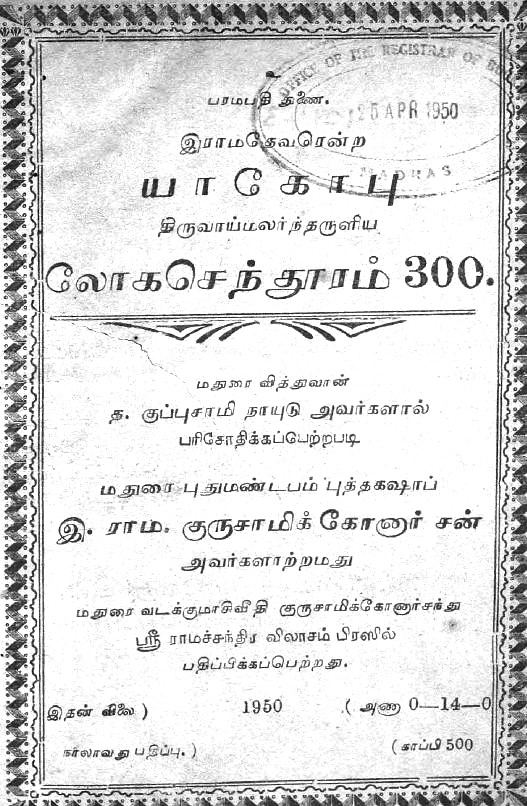 OFFICE OF THE REGISTRAR OF
25 APR 1950
MADRAS
பரமபதி துணை.
இராமதேவரென்ற
யாகோபு
திருவாய்மலர்ந்தருளிய
லோகசெந்தூரம் 300.
மதுரை வித்துவான்
த. குப்புசாமி நாயுடு அவர்களால்
பரிசோதிக்கப்பெற்றபடி
மதுரை புதுமண்டபம் புத்தகஷாப்
இ. ராம. குருசாமிக் கோனார் சன்
அவர்களாற்றமது
மதுரை வடக்குமாசிவீதி குருசாமிக்கோனார்சந்து
ஸ்ரீ ராமச்சந்திர விலாசம் பிரஸில்
பதிப்பிக்கப்பெற்றது.
இதன் விலை ) 1950 ( அணா 0—14—0
நாலாவது பதிப்பு. ) ( காப்பி 500